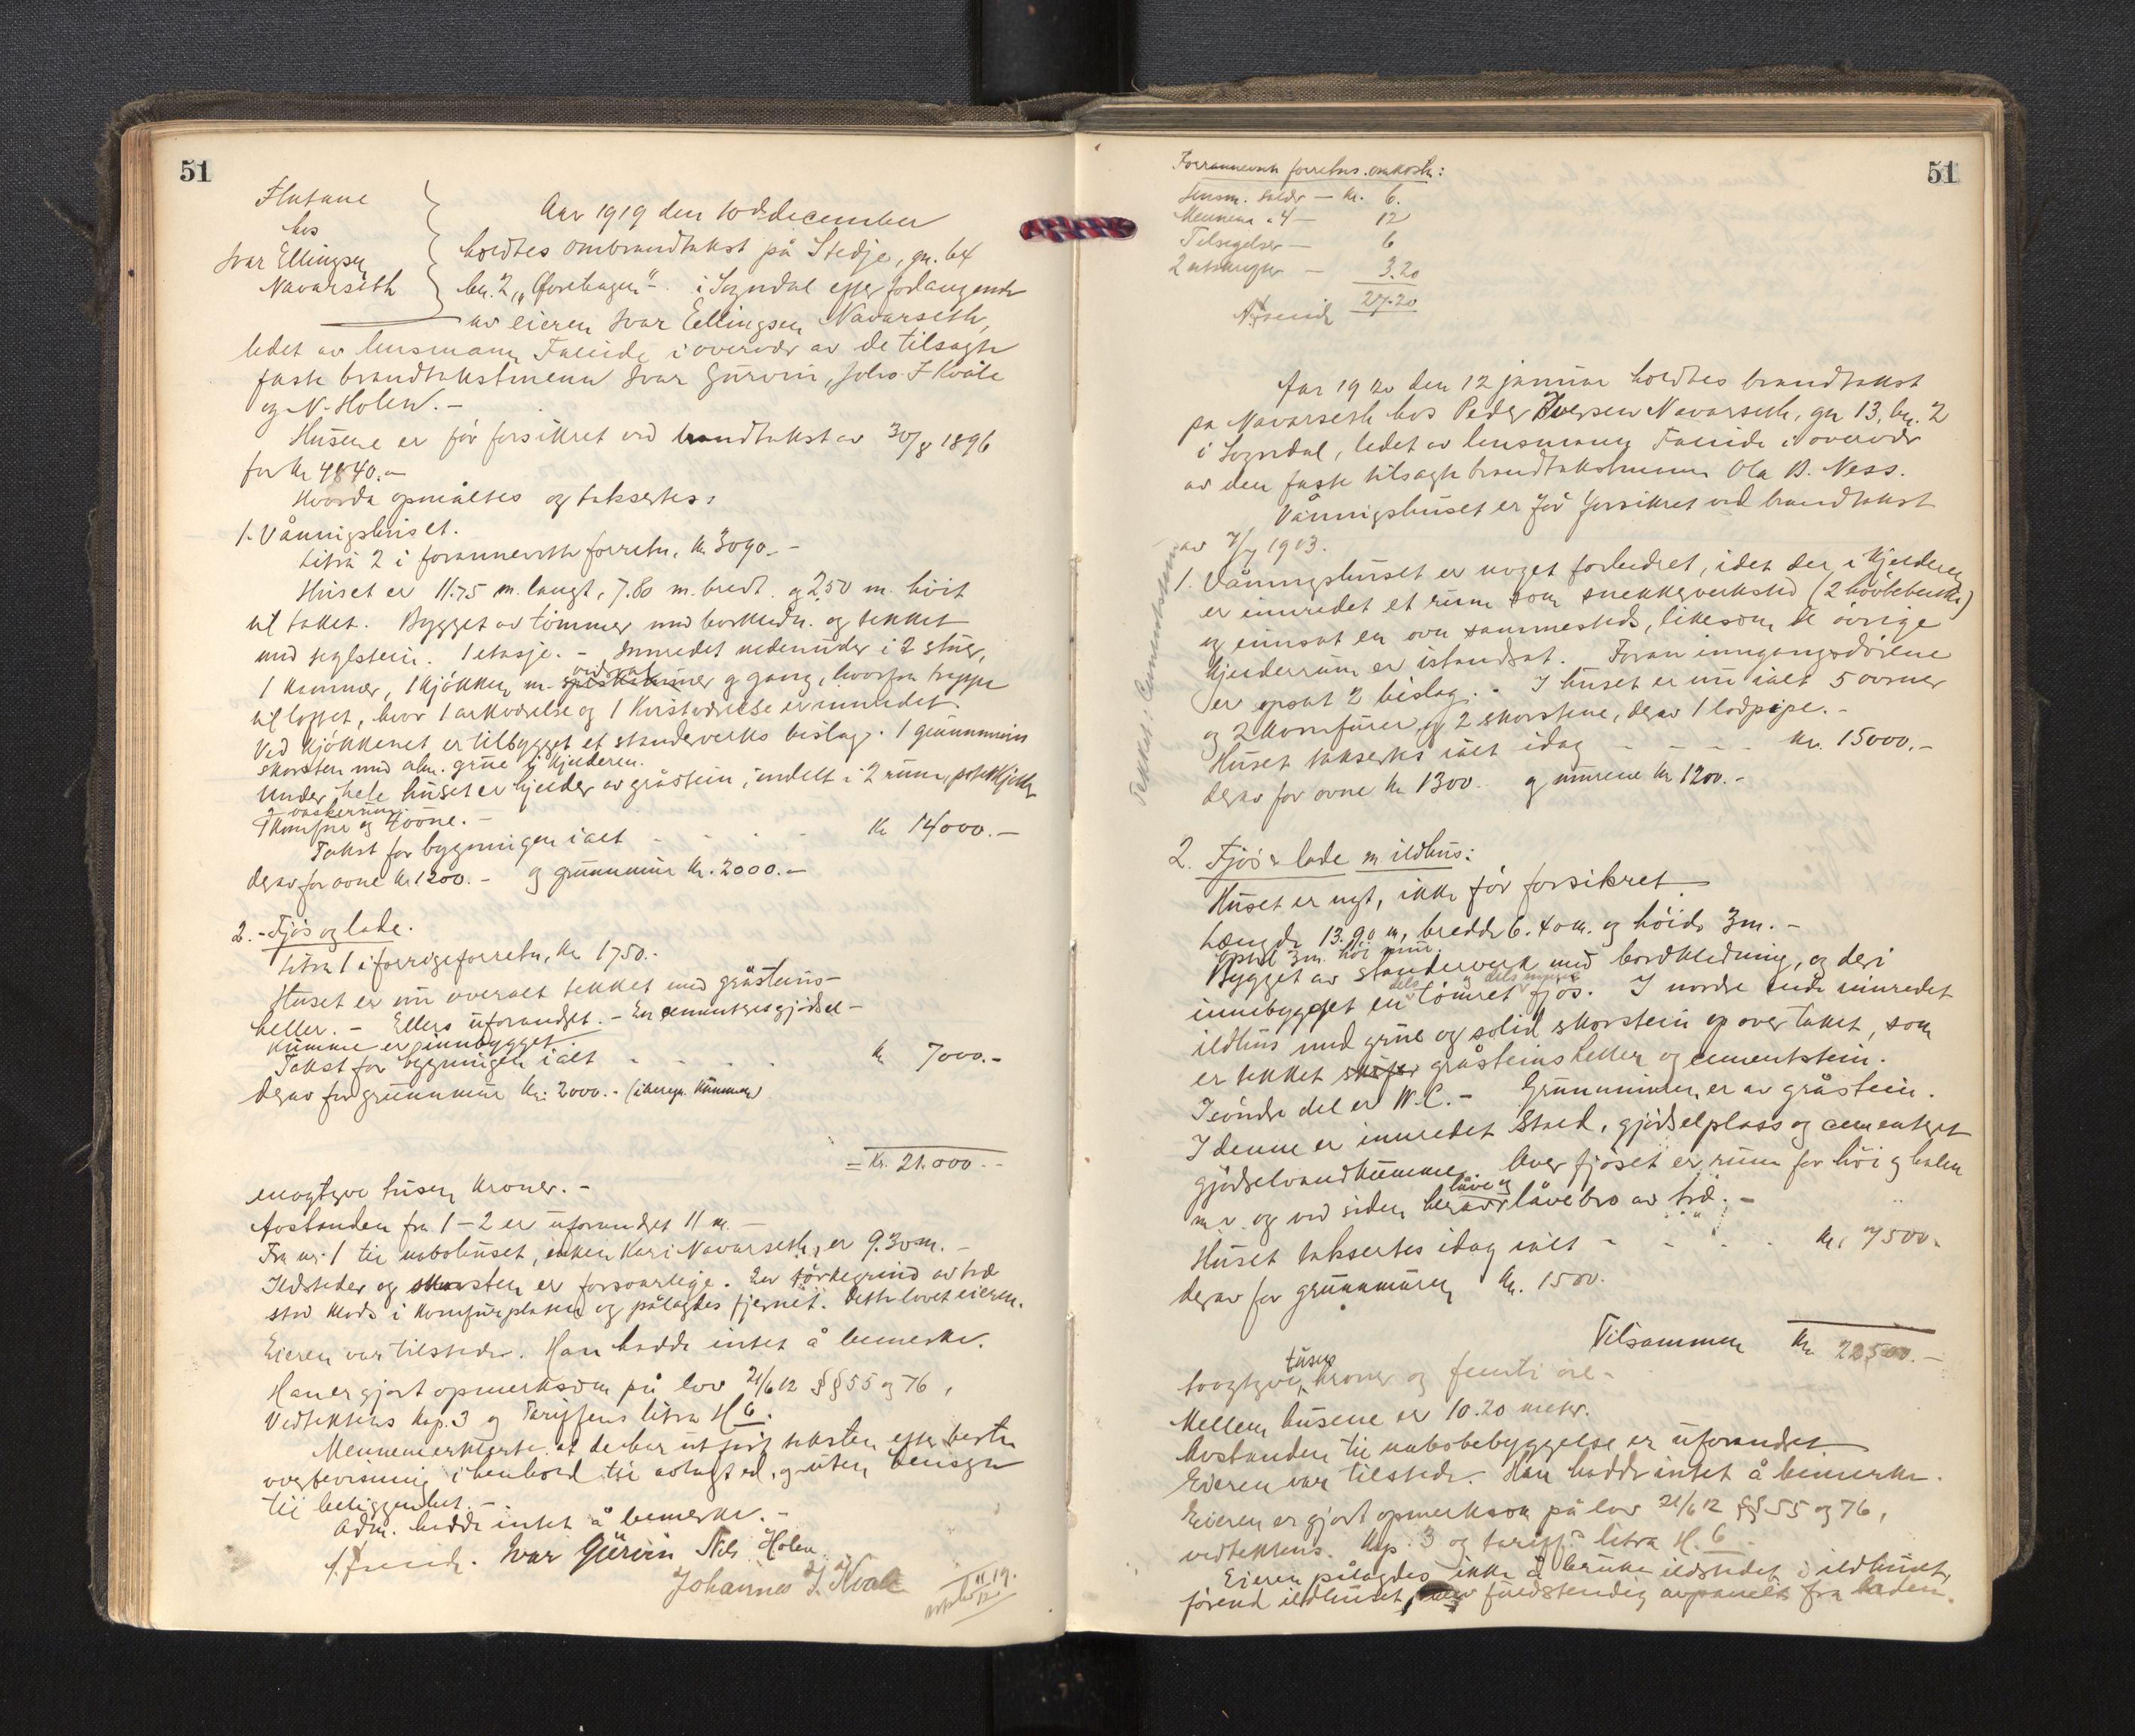 51
Flutune
hos
Ivar Ellingsen
Navarseth
Aar 1919 den 10de december
holdtes ombrandtakst på Stedje, gn. 64
bn. 2, i Sogndal efter forlangende
av eieren Ivar Ellingsen Navarseth,
ledet av lensmann Faleide i overvær av de tilsagte
faste brandtakstmenn Ivar Gurvin, Johs. J Kvåle
og N. Holen. -
Husene er før forsikret ved brandtakst av 30/8 1896
for kr 4840. -
Hvorda opmåltes og taksertes:
1. Våningshuset.
Litra 2 i forannevnte forretn. kr. 3090. -
Huset er 11.75 m. langt, 7.80 m. bredt og 2.50 m. høit
til taket. Bygget av tømmer med bordkledn. og tekket
med teglstein. 1 etasje. - Innredet nedenunder i 2 stuer,
1 kammer, 1 kjøkken m. spiskammer og gang, hvorfra trappe
til loftet, hvor 1 arkværelse og 1 kvistværelse er innredet.
Ved kjøkkenet er tilbygget et standerverks bislag. 1 grunnmurs
skorsten med alm. grue i kjelderen.
Under hele huset er kjelder av gråstein, indelt i 2 rum, potetkjelder
og vaskerum.
1 komfur og 4 ovne. -
Takst for bygningen ialt - - - kr 14000. -
derav for ovne kr 1200. - og grunnmur kr. 2000. -
2. - Fjøs og lade.
Litra 1 i forrige forretn. kr 1750. -
Huset er nu overalt tekket med gråsteins-
heller. - Ellers uforandret. - En cementeret gjødsel-
kumme er innbygget.
Takst for bygningen ialt - - - kr 7000. -
derav for grunnmur kr. 2000. - (iberegn. kummen)
= Kr. 21.000. -
enogtyve tusen kroner. -
Avstanden fra 1 - 2 er uforandret 11 m. -
Fra nr. 1 til nabohuset, enken Kari Navarseth, er 9.30 m. -
Ildsteder og skorsten er forsvarlige. En tørkegrind av træ
stod klods i komfurplaten og pålagdes fjernet. Dette lovet eieren.
Eieren var tilstede. Han hadde intet å bemerke.
Han er gjort opmerksom på lov 21/6 12 §§ 55 og 76,
Vedtektens kap. 3 og Tariffens litra H 6.
Mennene erklærte at de har utført taksten efter beste
overbevisning i henhold til avlagt ed, og uten hensyn
til beliggenhet. -
Adm. hadde intet å bemerke. -
A. Faleide. Ivar Gurvin Nils Holen
Johannes J. Kvåle
51
Forannevnte forretns. omkostn:
Lensm. salær - kr. 6.
Mennene a 4 - 12
Tilsigelser - 6
2 utskrifter - 3.20
27.20
A. Faleide
Aar 1920 den 12 januar holdtes brandtakst
på Navarseth hos Peder Iversen Navarseth, gn 13, bn. 2
i Sogndal, ledet av lensmann Faleide i overvær
av den faste tilsagte brandtakstmenn Ola B. Ness.
Våningshuset er før forsikret ved brandtakst
av 7/7 1903.
Tekket: Cementstein
1. Våningshuset er noget forbedret, idet der i kjelderen
er innredet et rum som snekkerverksted (2 høvlebenker)
og innsat en ovn sammesteds, likesom de øvrige
kjelderrum er istandsat. Foran inngangsdørene
er opsat 2 bislag. - I huset er nu ialt 5 ovner
og 2 komfurer, og 2 skorstene, derav 1 lodpipe. -
Huset taksertes ialt idag - - - kr. 15000. -
derav for ovne kr 1300. og murene kr 1200. -
2. Fjøs & lade m ildhus:
Huset er nyt, ikke før forsikret.
Længde 13.90 m, bredde 6.40 m. og høide 3 m. -
opstil 3 m. høi mur.
Bygget av standerverk med bordkledning, og deri
innebygget en dels tømret dels muret fjøs. I nordre ende innredet
ildhus med grue og solid skorstein op over taket, som
er tekket skifer gråsteinsheller og cementstein.
I søndre del er W.C. - Grunnmuren er av gråstein.
I denne er innredet stald, gjødselplass og cementeret
gjødselvandkumme. Over fjøset er rum for høi og halm
m.v. og ved siden herav låve og låvebro av træ. -
Huset taksertes idag ialt - - - kr. 7500.
derav for grunnmuren kr. 1500.
Tilsammen kr. 22500. -
toogtyve tusen kroner og femti øre -
Mellem husene er 10.20 meter.
Avstanden til nabobebyggelse er uforandret
Eieren var tilstede. - Han hadde intet å bemerke.
Eieren er gjort opmerksom på lov 21/6 12 §§ 55 og 76,
vedtektens. kap. 3 og tariff. litra H. 6.
Eieren pålagdes ikke å bruke ildstedet i ildhuset,
førend ildhuset, fuldstendig avpanelt fra laden.